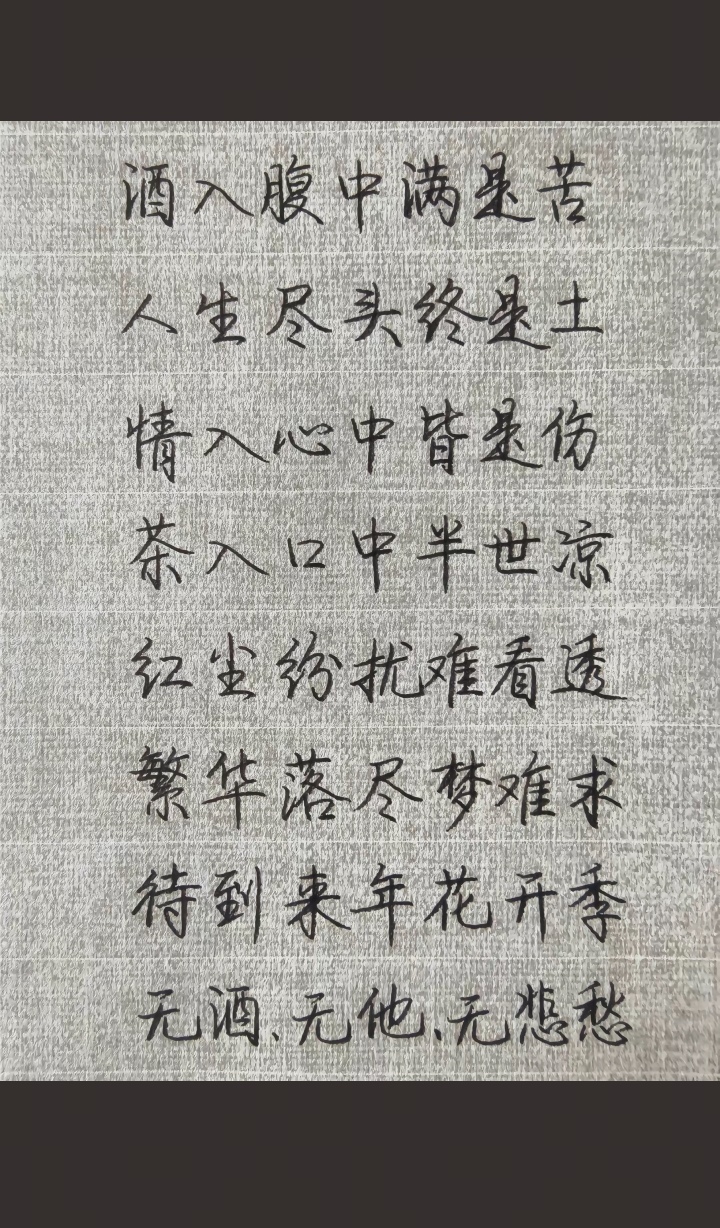 酒入腹中满是苦
人生尽头终是土
情入心中皆是伤
茶入口中半世凉
红尘纷扰难看透
繁华落尽梦难求
待到来年花开季
无酒、无他、无悲愁